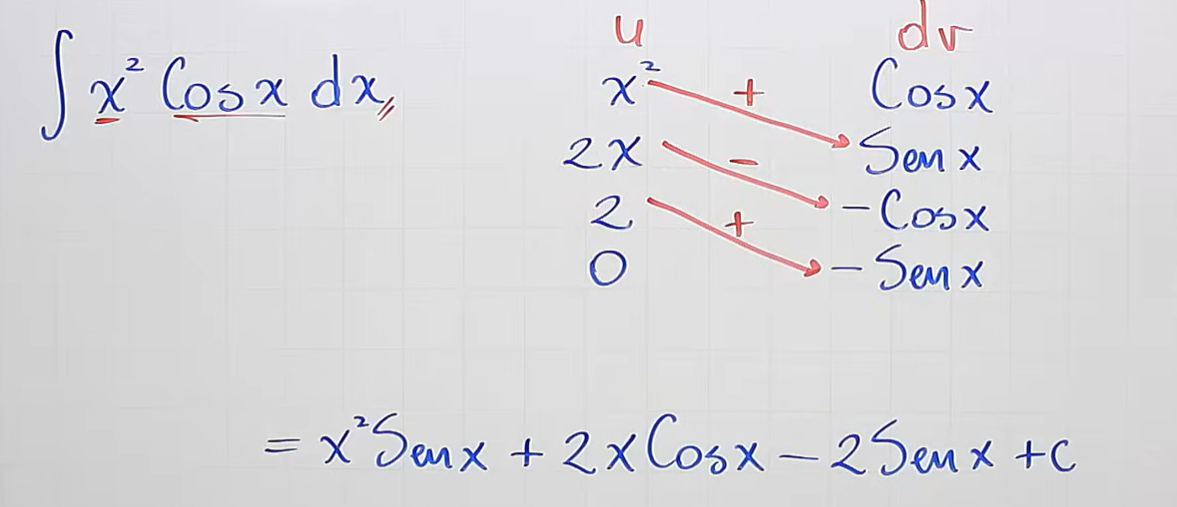 ∫ x² Cos x dx,,
u dv
x² + Cos x
2x - Sen x
2 + - Cos x
0 - Sen x
= x² Sen x + 2x Cos x - 2 Sen x + c